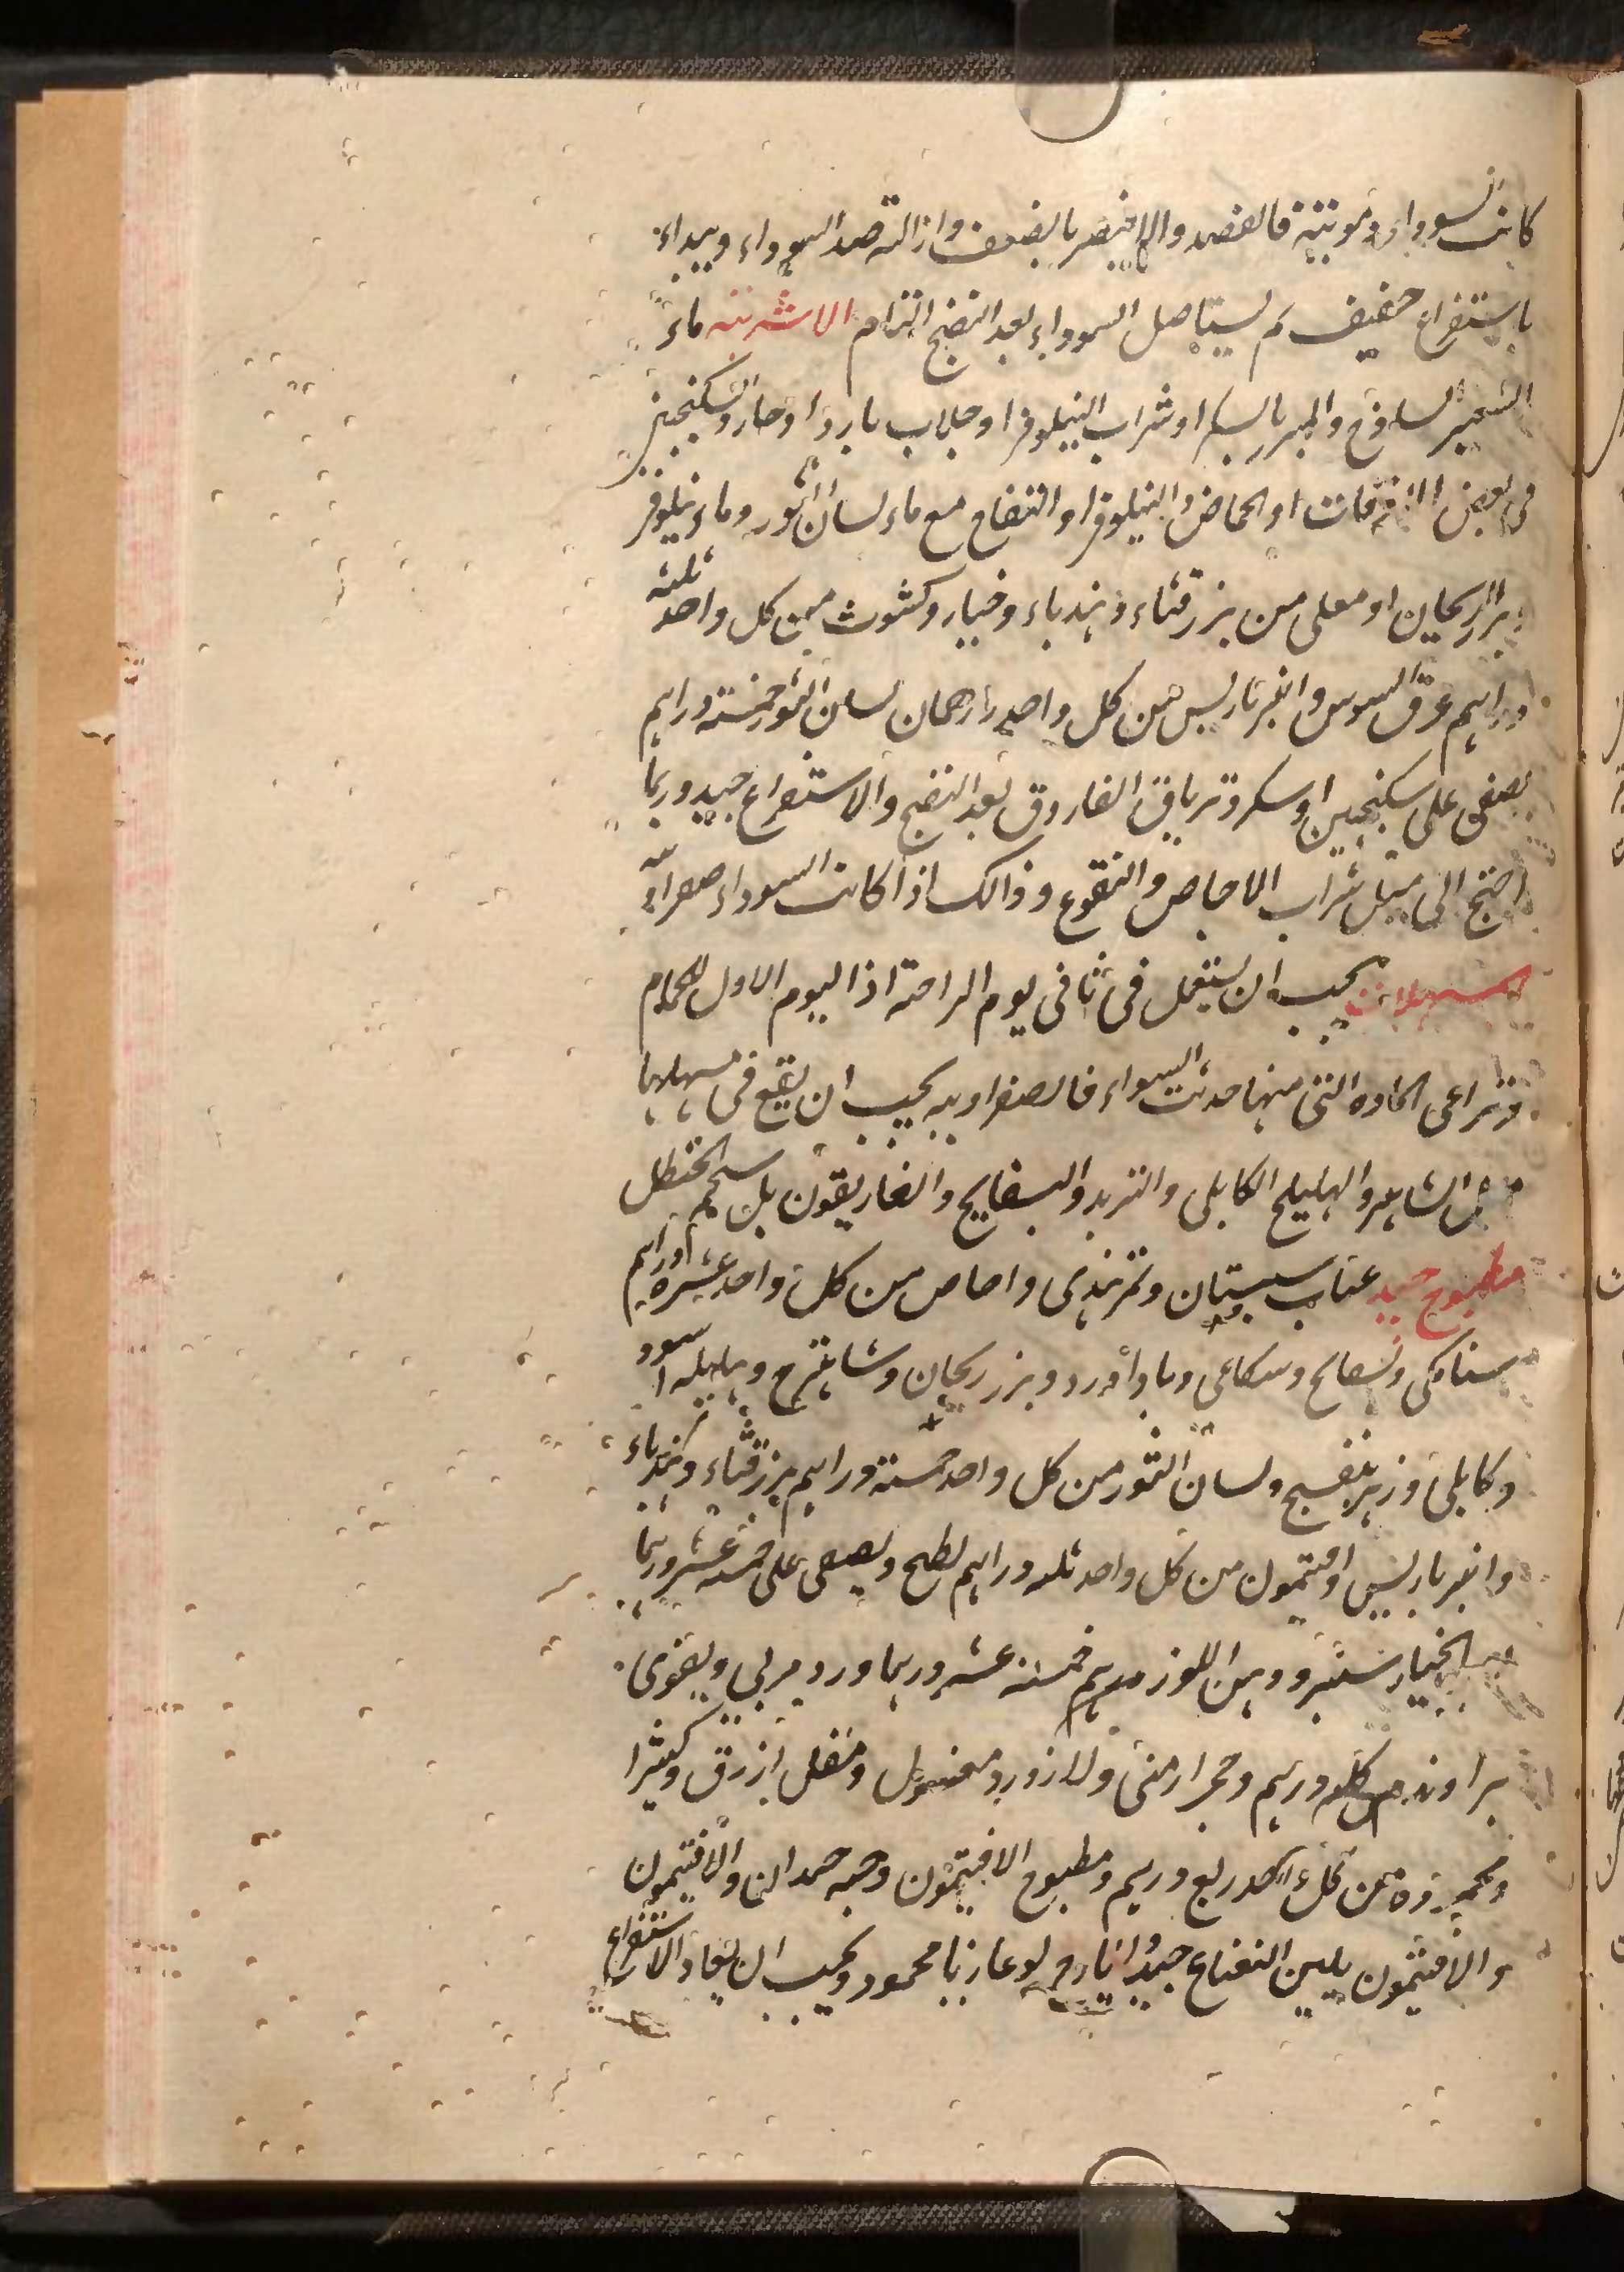 كانت السوداء دموية فالفصد والا فيضر بالضعف وازالته صد السوداء ويبداء
باستفراغ خفيف ثم يستاصل السوداء بعد النضج التام الاشربة ماء
الشعير الساذج والمبزر بالسكر او شراب النيلوفر او جلاب باردا او حار والسكنجبين
فى بعض الاوقات او الحماض والنيلوفر او التفاح مع ماء لسان الثور وماء نيلوفر
وبزر الريحان او مغلى من بزر قثاء وهندباء وخيار وكشوث من كل واحد ثلثه
دراهم عرق السوس وانبرباريس من كل واحد درهمان لسان الثور خمسة دراهم
يصفى على سكنجبين او سكر وترياق الفاروق بعد النضج والاستفراغ جيد وربما
احتيج الى مثل شراب الاجاص والنقوع وذالك اذا كانت السوداء صفراويه
المسهلات يجب ان يستعمل فى ثانى يوم الراحة اذ اليوم الاول للحمام
وتراعى المادة التى منها حدثت السوداء فالصفراويه يجب ان يقع فى مسهلها
مثل الشاهتر والهليلج الكابلى والتربد والبسفايج والغاريقون بل شحم الحنظل
مطبوخ جيد عناب سبستان وتمر هندى واجاص من كل واحد عشرة دراهم
سنا مكى وبسفايج وشكاعى وباداورد وبزر ريحان وشاهترج وهليله اسود
وكابلى وزهر بنفسج ولسان الثور من كل واحد خمسة دراهم بزر قثاء وهندباء
وانبرباريس افتيمون من كل واحد ثلثه دراهم يطبخ ويصفى على خمسة عشر درهما
الخيار شنبر ودهن اللوز درهم خمسة عشر درهما ورد مربى ويقوى
براوند كله درهم وحجر ارمنى ولازورد مغسول ومقل ازرق وكثيرا
ومحموده من كل واحد ربع درهم ومطبوخ الافتيمون وحبه حمدان والافتيمون
والافتيمون بلبن النعاج جيد وايارج لوغاريا محمود ويجب ان يعاد الاستفراغ